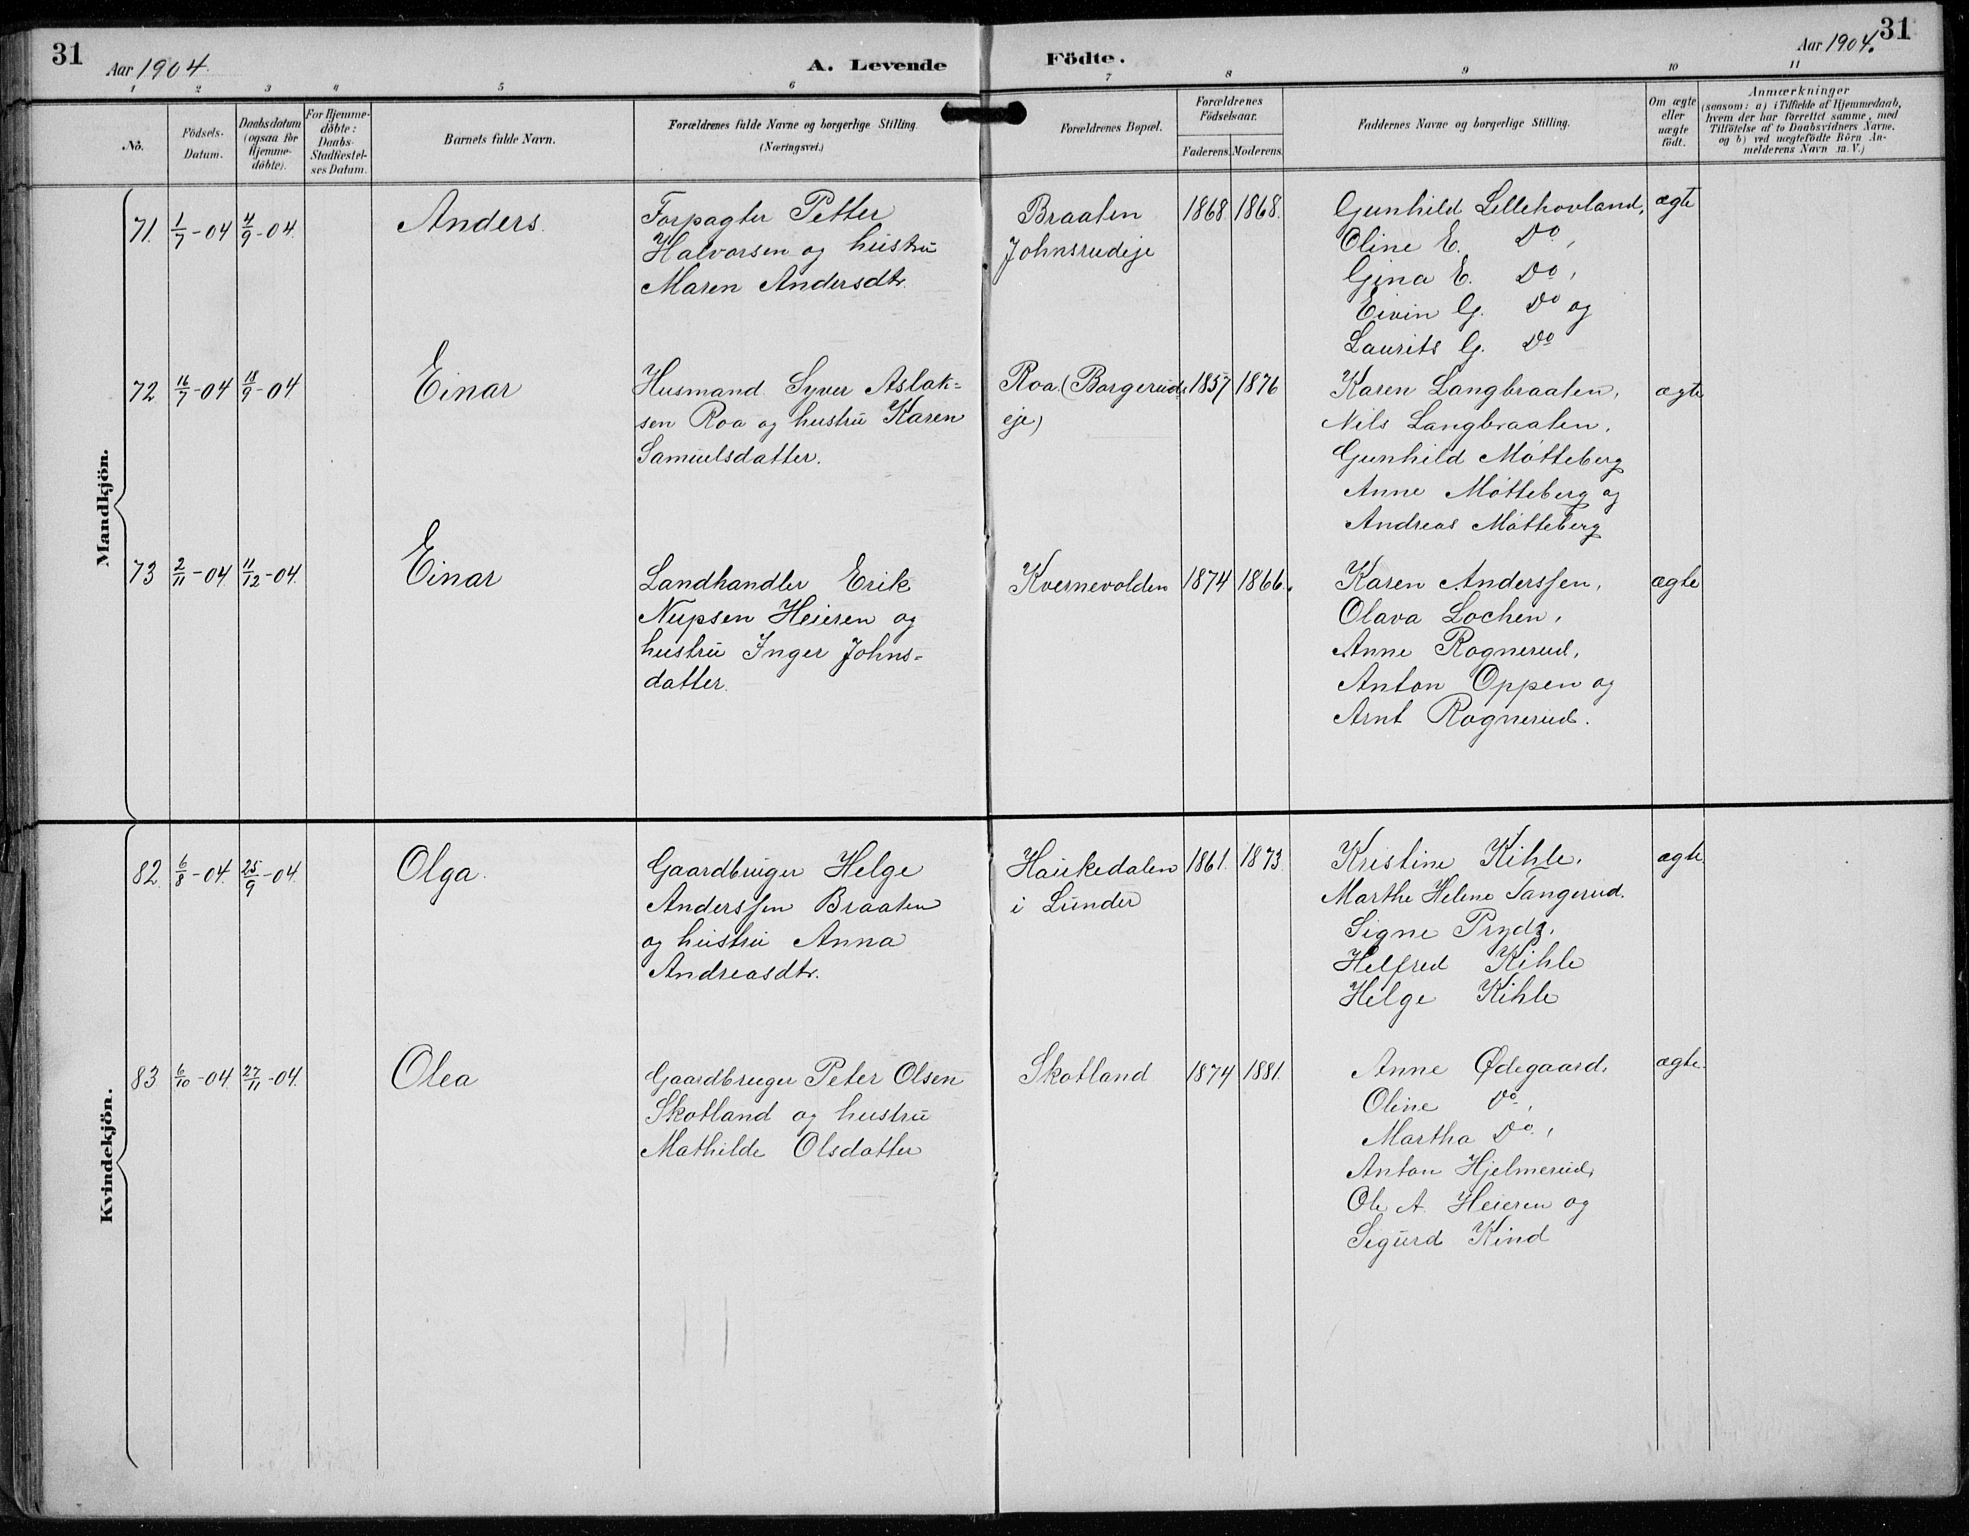 31
Aar 1904.
A. Levende
Födte.
Aar 1904.
31
1 2 3 4 5 6 7 8 9 10 11
No.
Födsels-
Datum.
Daabsdatum
(ogsaa for
Hjemme-
døbte).
For Hjemme-
døbte:
Daabs-
Stadfæstel-
ses Datum.
Barnets fulde Navn.
Forældrenes fulde Navne og borgerlige Stilling.
(Næringsvei.)
Forældrenes Bopæl.
Forældrenes
Födselsaar.
Faderens. Moderens.
Faddernes Navne og borgerlige Stilling.
Om ægte
eller
uægte
født.
Anmærkninger
(saasom: a) i Tilfælde af Hjemmedaab,
hvem der har forrettet samme, med
Tilføielse af to Daabsvidners Navne,
og b) ved uægtefødte Börn An-
melderens Navn m. V.)
Mandkjön.
71. 1/7-04 4/9-04. Anders.
Forpagter Petter
Halvorsen og hustru
Maren Andersdtr.
Braaten
Johnsrudeje
1868. 1868.
Gunhild Lillehovland,
Oline E. Do,
Gina E. Do,
Eivin G. Do og
Laurits G. Do
ægte
72 16/7-04 18/9-04 Einar
Husmand Syver Aslak-
sen Roa og hustru Karen
Samuelsdatter.
Roa (Borgeruds
eje)
1857 1876
Karen Langbraaten,
Nils Langbraaten,
Gunhild Møtteberg
Anne Møtteberg og
Andreas Møtteberg
ægte
73 2/11-04. 11/12-04. Einar
Landhandler Erik
Nupsen Heieren og
hustru Inger Johns-
datter.
Kvernevolden
1874 1866.
Karen Anderssen,
Olava Lochen,
Anne Rognerud,
Anton Oppen og
Arnt Rognerud.
ægte
Kvindekjön.
82. 6/8-04. 25/9-04. Olga.
Gaardbruger Helge
Anderssen Braaten
og hustru Anna
Andreasdtr.
Haukedalen
i Lunder
1861. 1873.
Kristine Kihle,
Marthe Helene Tangerud.
Signe Prydz,
Helfred Kihle
Helge Kihle
ægte
83 6/10-04. 27/11-04. Olea
Gaardbruger Peter Olsen
Skotland og hustru
Mathilde Olsdatter
Skotland
1874 1881.
Anne Ødegaard,
Oline Do,
Martha Do,
Anton Hjelmerud,
Ole A. Heieren og
Sigurd Kind
ægte.